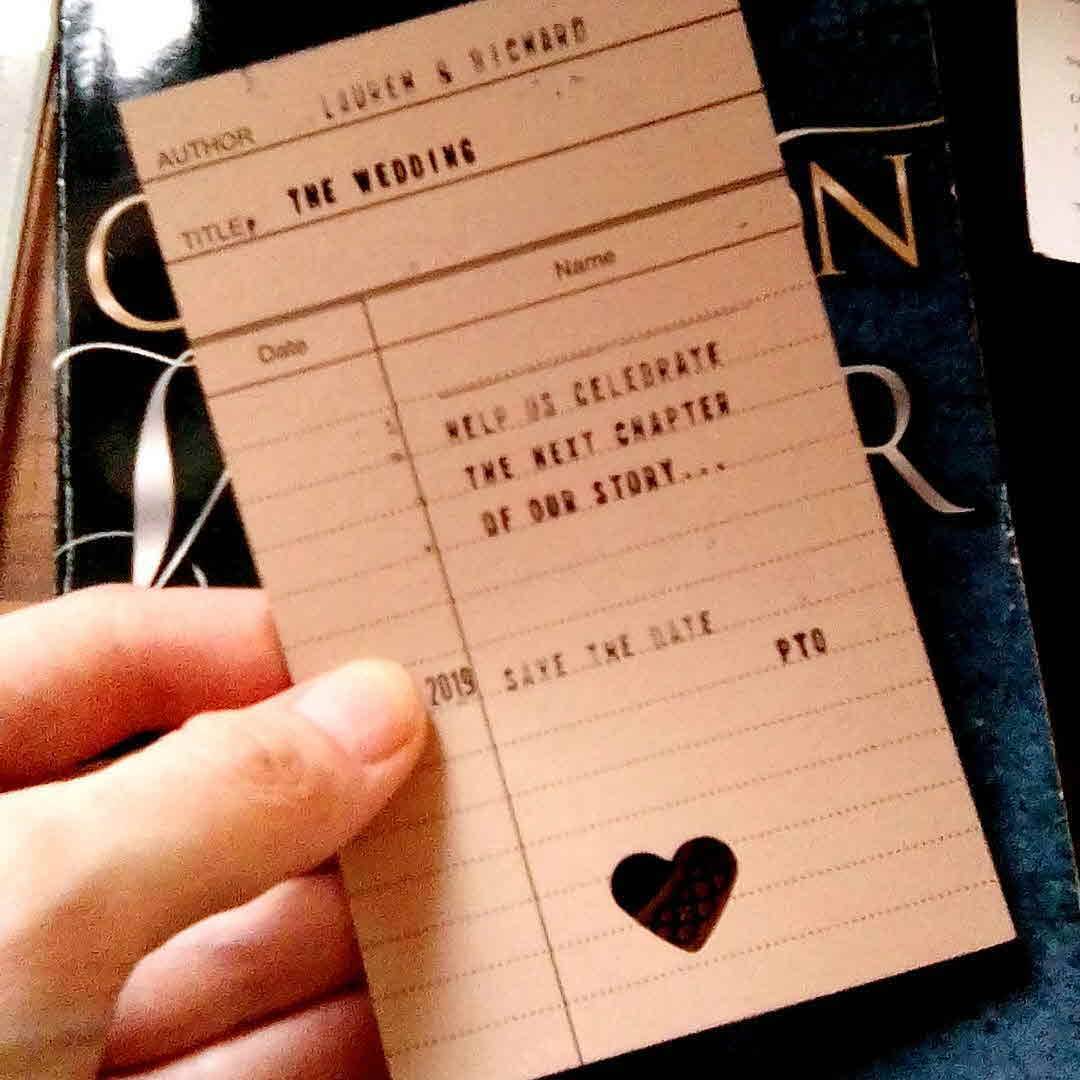 LAUREN & RICHARD
AUTHOR
THE WEDDING
TITLE
Date
Name
HELP US CELEBRATE
THE NEXT CHAPTER
OF OUR STORY...
2019 SAVE THE DATE PTO
N
R